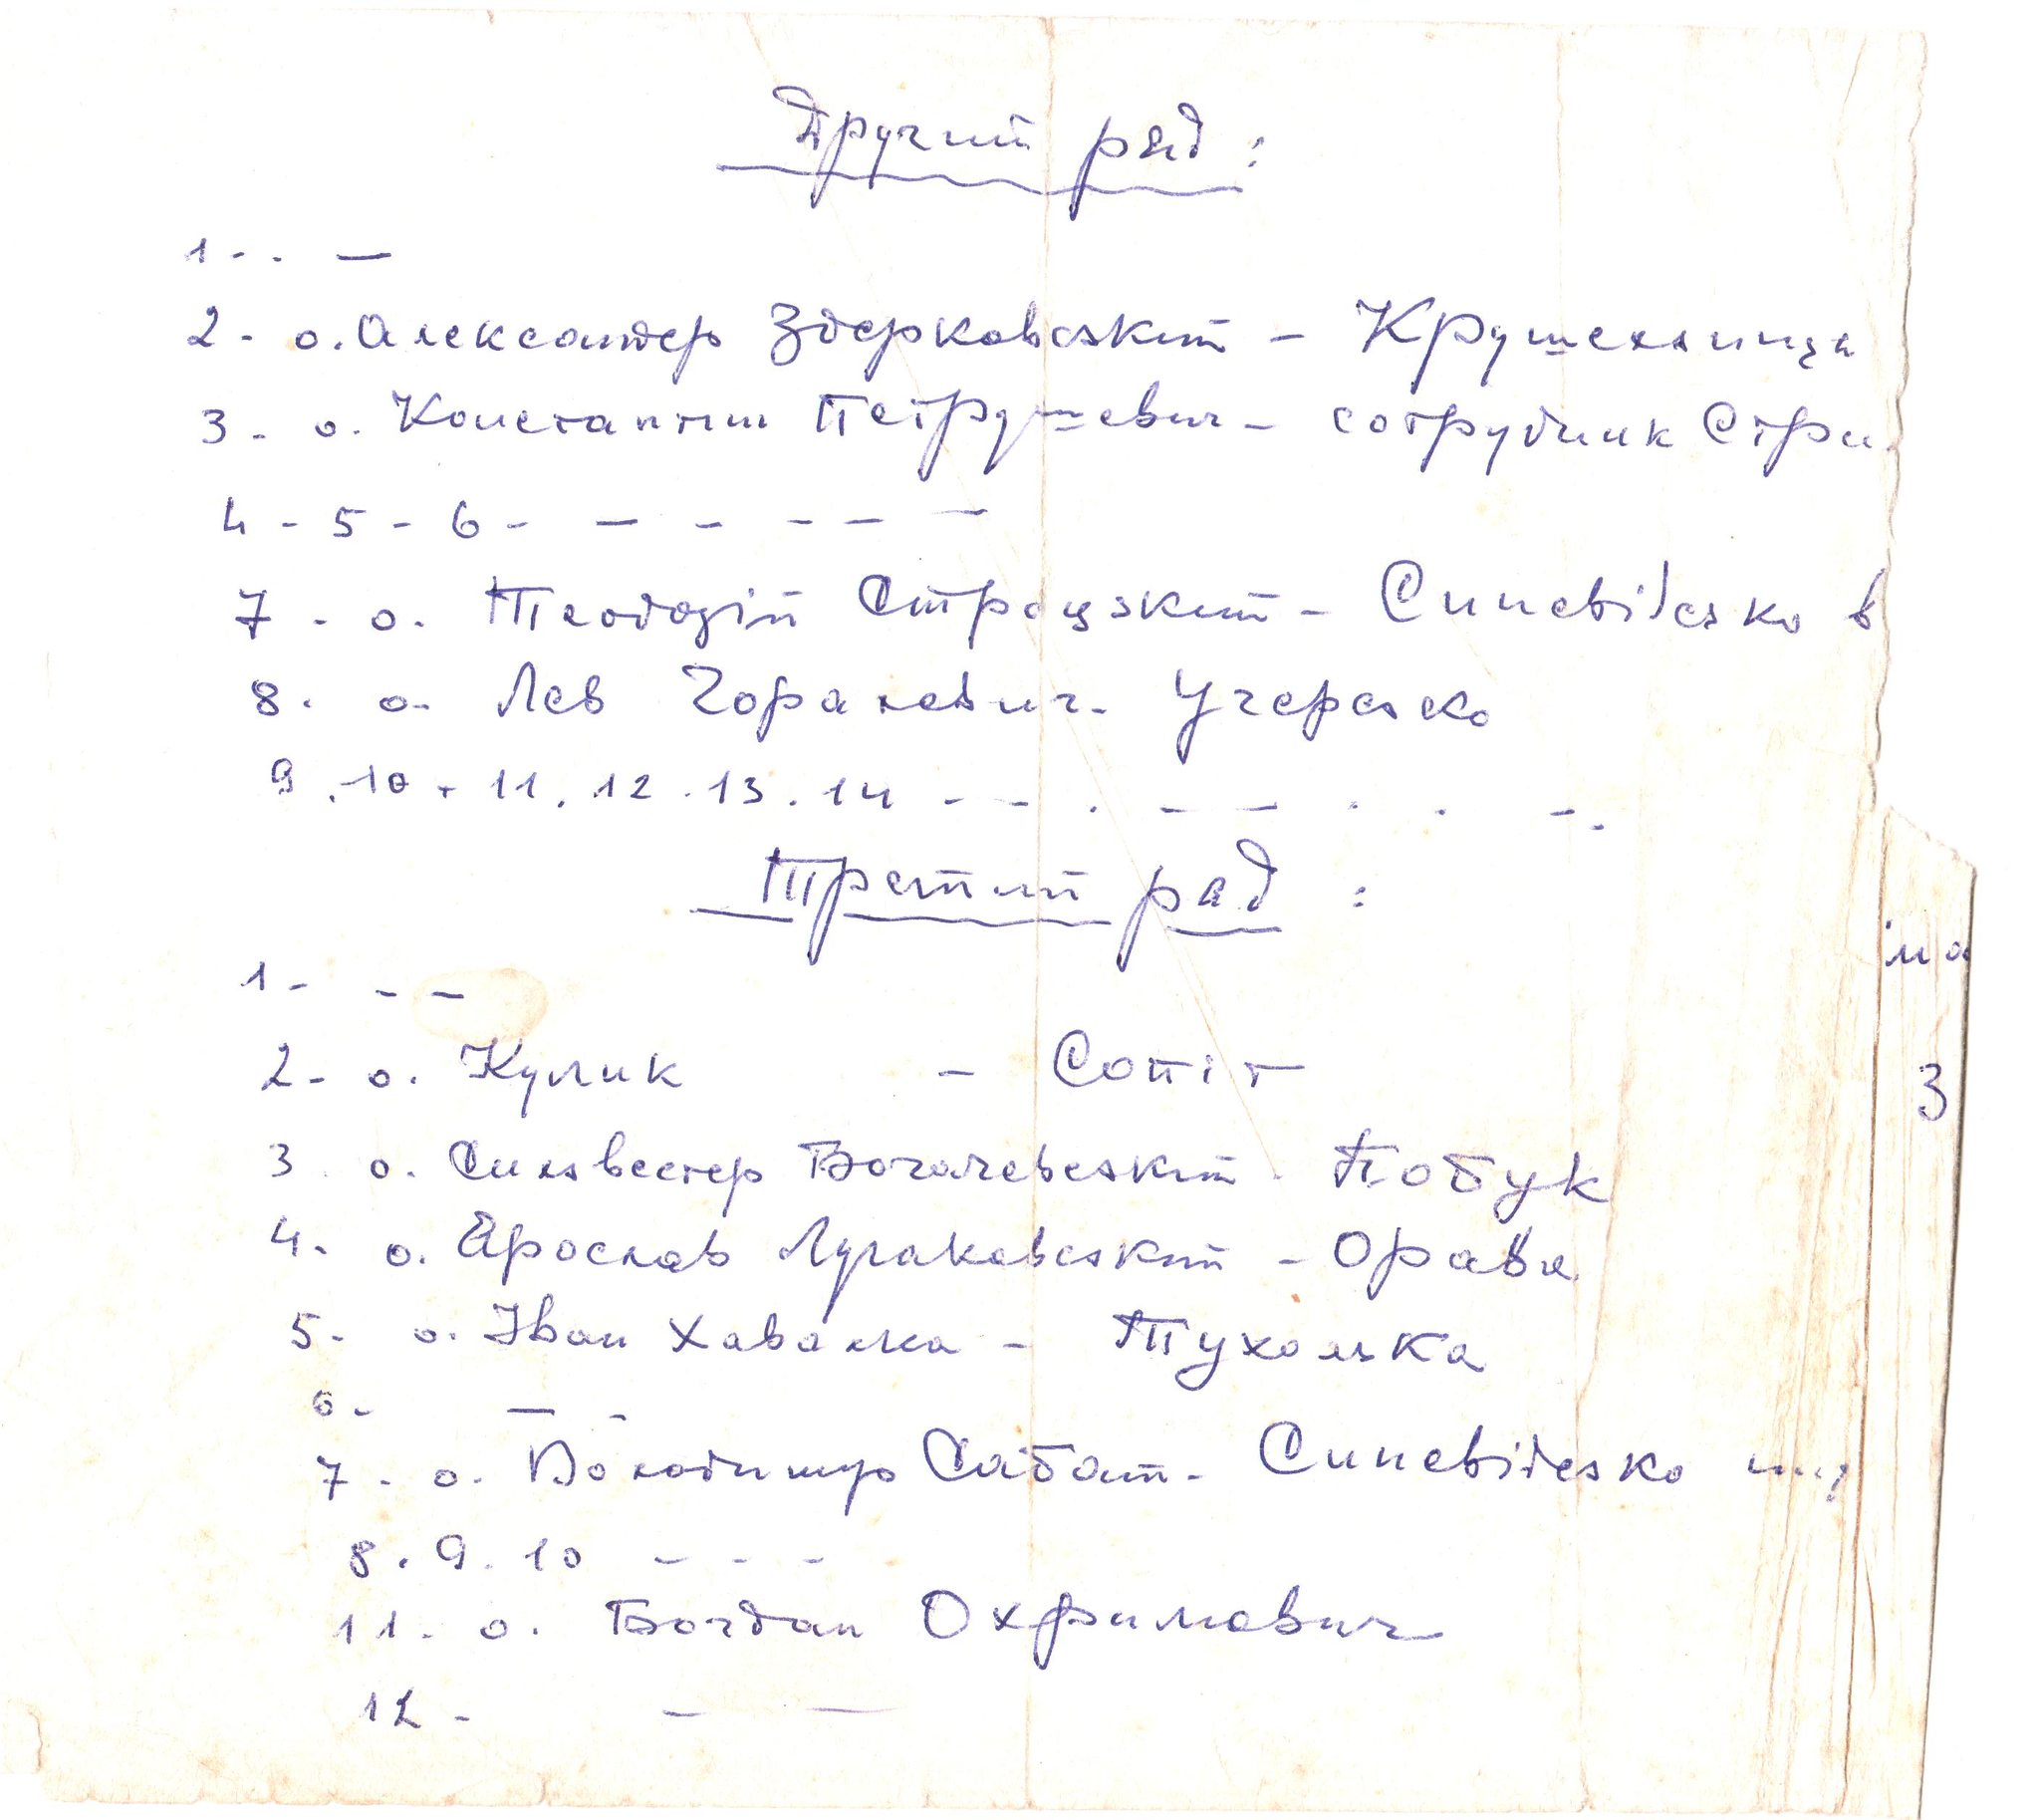 Другий ряд:
1 - . —
2 - о. Александер Здерковський - Крушельниця
3 - о. Константин Петрушевич - сотрудник Стри
4 - 5 - 6 - — - - — —
7 - о. Теодозій Строцький - Синевідсько в
8. о. Лев Горалевич - Угерсько
9. 10. 11. 12. 13. 14 - - . — — . . - -
Третий ряд:
1 - - —
2 - о. Кулик - Сопіт
3. о. Сильвестер Богачевський - Побук
4. о. Ярослав Лугаковський - Орава
5 - о. Іван Хавалка - Тухолька
6 - — -
7 - о. Володимир Сабат - Синевідсько
8. 9. 10 - - -
11. о. Богдан Охримович
12 - - —
ма
3